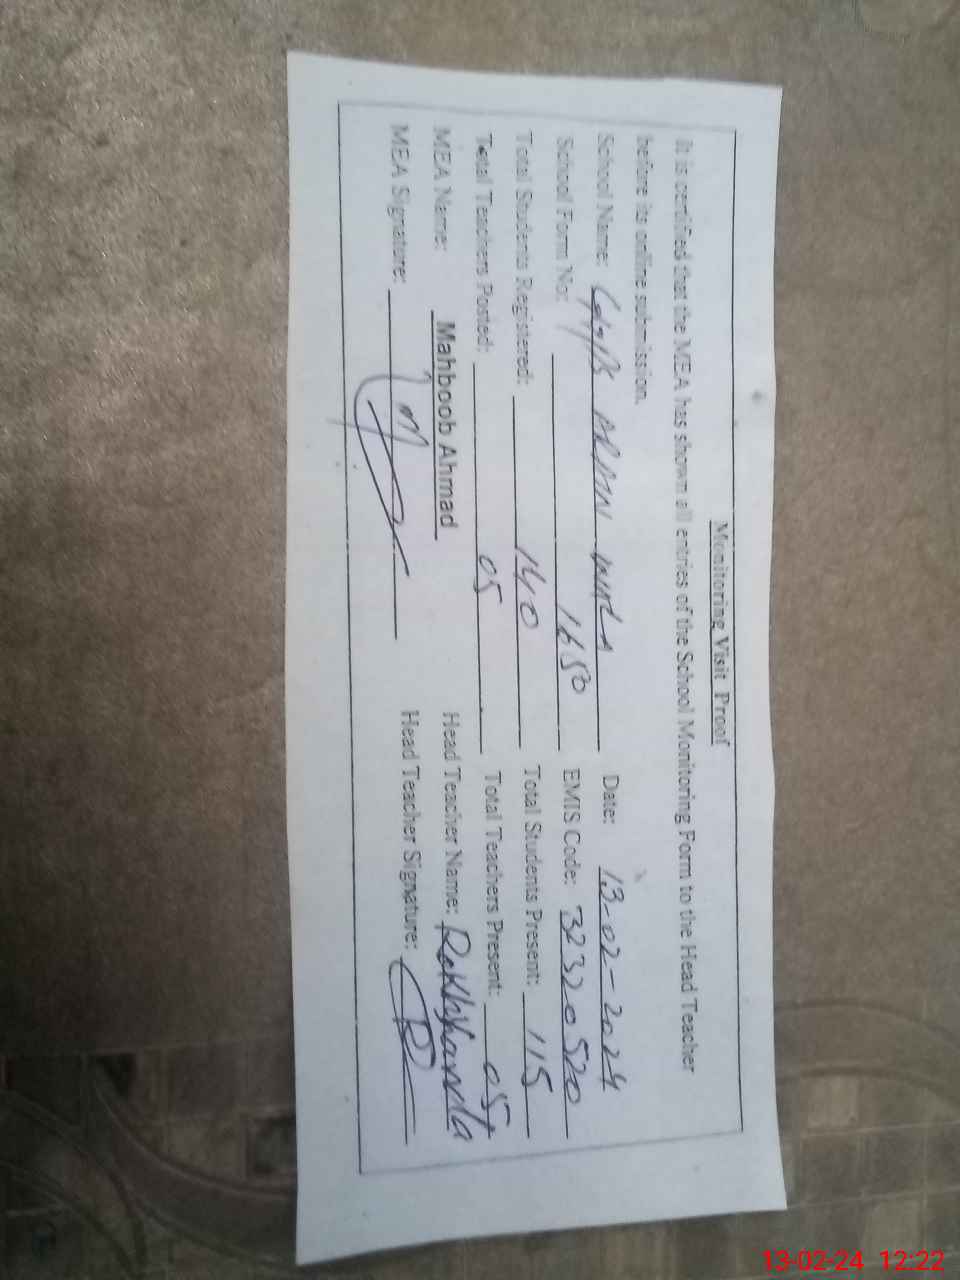 Monitoring Visit Proof
It is certified that the MEA has shown all entries of the School Monitoring Form to the Head Teacher
before its online submission.
School Name: Date: 13-02-2024
School Form No: 1650 EMIS Code: 32320520
Total Students Registered: 140 Total Students Present: 115
Total Teachers Posted: 05 Total Teachers Present: 05
MEA Name: Mahboob Ahmad Head Teacher Name: Rakhshanda
MEA Signature: Head Teacher Signature:
13-02-24 12:22